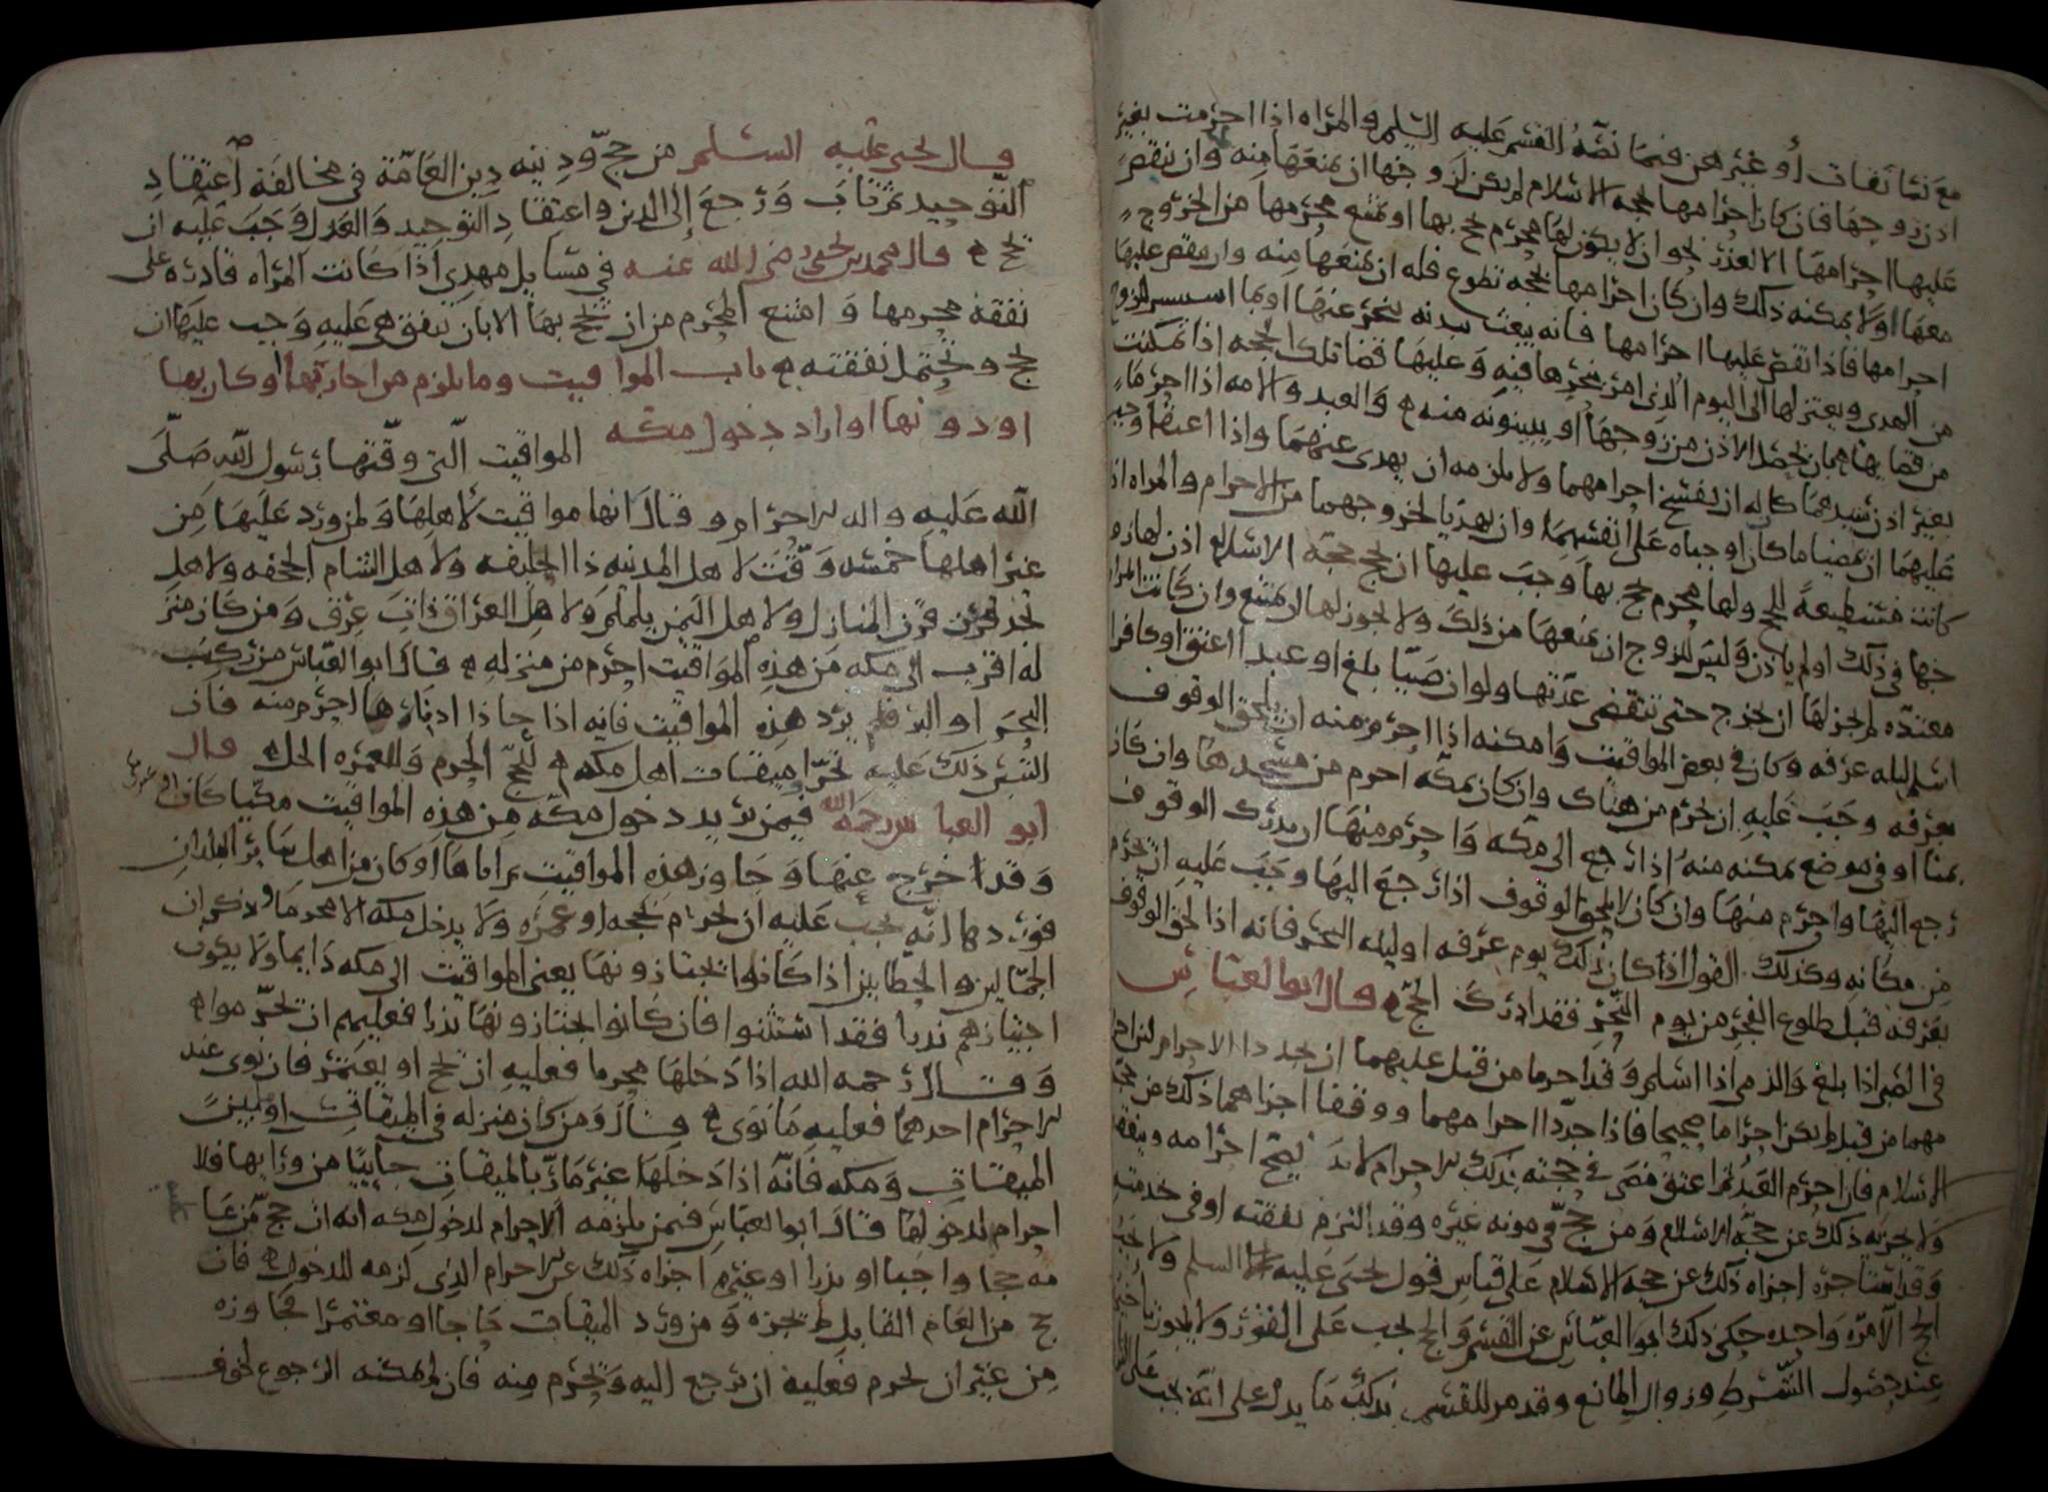 مع نسا ثقات أو غيرهن فيما نصه القسم عليه السلم والمراه اذا احرمت بغير
اذن زوجها فان كان احرامها لحجه الاسلام لم يكن لزوجها ان يمنعها منه وان ينقض
عليها احرامها الا لعذر نحو ان لا يكون لها محرم يحج بها او يمتنع محرمها من الخروج
معها اولا يمكنه ذلك وان كان احرامها بحجه تطوع فله ان يمنعها منه وان ينقض عليها
احرامها فاذا نقض عليها احرامها فانه يبعث ببدنه ينحر عنها او بما استيسر
من الهدى ويعتزلها الى اليوم الذى امر بنحرها فيه وعليها قضا تلك الحجه اذا تمكنت
من قضايها بان يحصل الاذن من زوجها او ببينونه منه والعبد والامه اذا احرما
بغير اذن سيدهما كان له ان يفسخ احرامهما ولا يلزمه ان يهدى عنهما واذا اعتقا وجب
عليهما ان يمضيا ما كان اوجباه على انفسهما وان يهديا لخروجهما من الاحرام والمراه اذا
كانت مستطيعة للحج ولها محرم يحج بها وجب عليها ان تحج حجة الاسلام اذن لها زو
جها فى ذلك او لم ياذن وليس للزوج ان يمنعها من ذلك ولا يجوز لها ان تمتنع وان كانت المراه
معتده لم يجز لها ان تخرج حتى تنقضى عدتها ولو ان صبيا بلغ او عبدا اعتق او كافرا
اسلم ليله عرفه وكان فى بعض المواقيت وامكنه اذا احرم منه ان يلحق الوقوف
بعرفه وجب عليه ان يحرم من هناك وان كان بمكه احرم من مسجدها وان كان
بمنا او فى موضع يمكنه منه اذا رجع الى مكه واحرم منها ان يدرك الوقوف
رجع اليها واحرم منها وان كان لا يلحق الوقوف اذا رجع اليها وجب عليه ان يحرم
من مكانه وكذلك القول اذا كان ذلك يوم عرفه او ليله النحر فانه اذا لحق الوقوف
بعرفه قبل طلوع الفجر من يوم النحر فقد ادرك الحج قال ابو العباس
فى الصبى اذا بلغ والذمى اذا اسلم وقد احرما من قبل عليهما ان يجددا الاحرام
مهما من قبل لم يكن احراما صحيحا فاذا جددا احرامهما ووقفا اجزاهما ذلك عن حجة
الاسلام فان احرم العبد ثم اعتق مضى فى حجته بذلك الاحرام لانه يصح احرامه
ولا يجزيه ذلك عن حجة الاسلام ومن حج فى مونه غيره وقد التزم نفقته او فى خدمته
وقد استاجره اجزاه ذلك عن حجه الاسلام على قياس قول يحيى عليه السلم ولا يجب
الحج الا مره واحده حكى ذلك ابو العباس عن القسم والحج يجب على الفور ولا يجوز
عند حصول الشرط وزوال المانع وقد مر للقسم ما يدل على انه يجب على
قال يحيى عليه السلم من حج ودينه دين العامة فى مخالفة اعتقاد
التوحيد ثم تاب ورجع إلى الدين واعتقاد التوحيد والعدل وجب عليه ان
يحج قال محمد بن يحيى رضى الله عنه فى مسايل مهدى اذا كانت المراه قادره على
نفقة محرمها وامتنع المحرم من ان يحج بها الا بان تنفق هى عليه وجب عليها ان
تحج وتحتمل نفقته باب المواقيت وما يلزم من جازبها او كان بها
او دونها او اراد دخول مكه
المواقيت التى وقتها رسول الله صلى
الله عليه واله للاحرام وقال انها مواقيت لاهلها ولمن ورد عليها من
غير اهلها خمسه وقت لاهل المدينه ذا الحليفه ولاهل الشام الجحفه ولاهل
نجد قرن المنازل ولاهل اليمن يلملم ولاهل العراق ذات عرق ومن كان منز
له اقرب الى مكه من هذه المواقيت احرم من منزله قال ابو العباس من ركب
البحر او البر فلم يرد هذه المواقيت فانه اذا حاذا ادناها احرم منه فان
التبس ذلك عليه تحرا ميقات اهل مكه للحج الحرم وللعمره الحل قال
ابو العباس رحمه الله فيمن يريد دخول مكه من هذه المواقيت مكيا كان او غيره
وقد خرج عنها وجاوز هذه المواقيت ثم اتاها او كان من اهل ساير البلدان
فورد ها انه يجب عليه ان يحرم بحجه او عمره ولا يدخل مكه الا محرما وذكر ان
الجمالين والحطابين اذا كانوا يجتازونها يعنى المواقيت الى مكه دايما ولا يكون
اجتيازهم ندرا فقد استثنوا فان كانوا يجتازونها ندرا فعليهم ان يحرموا
وقال رحمه الله اذا دخلها محرما فعليه ان يحج او يعتمر فان نوى عند
الاحرام احدهما فعليه ما نوى قال ومن كان منزله فى الميقات او بين
الميقات ومكه فانه اذا دخلها غير مار بالميقات جاييا من ورايها فلا
احرام لدخولها قال ابو العباس فيمن يلزمه الاحرام لدخول مكه انه ان حج من عا
مه حجا واجبا او نذرا او غيره اجزاه ذلك عن الاحرام الذى لزمه للدخول فان
حج من العام القابل لم يجزه ومن ورد الميقات حاجا او معتمرا فجاوزه
من غير ان يحرم فعليه ان يرجع اليه ويحرم منه فان لم يمكنه الرجوع لخوف